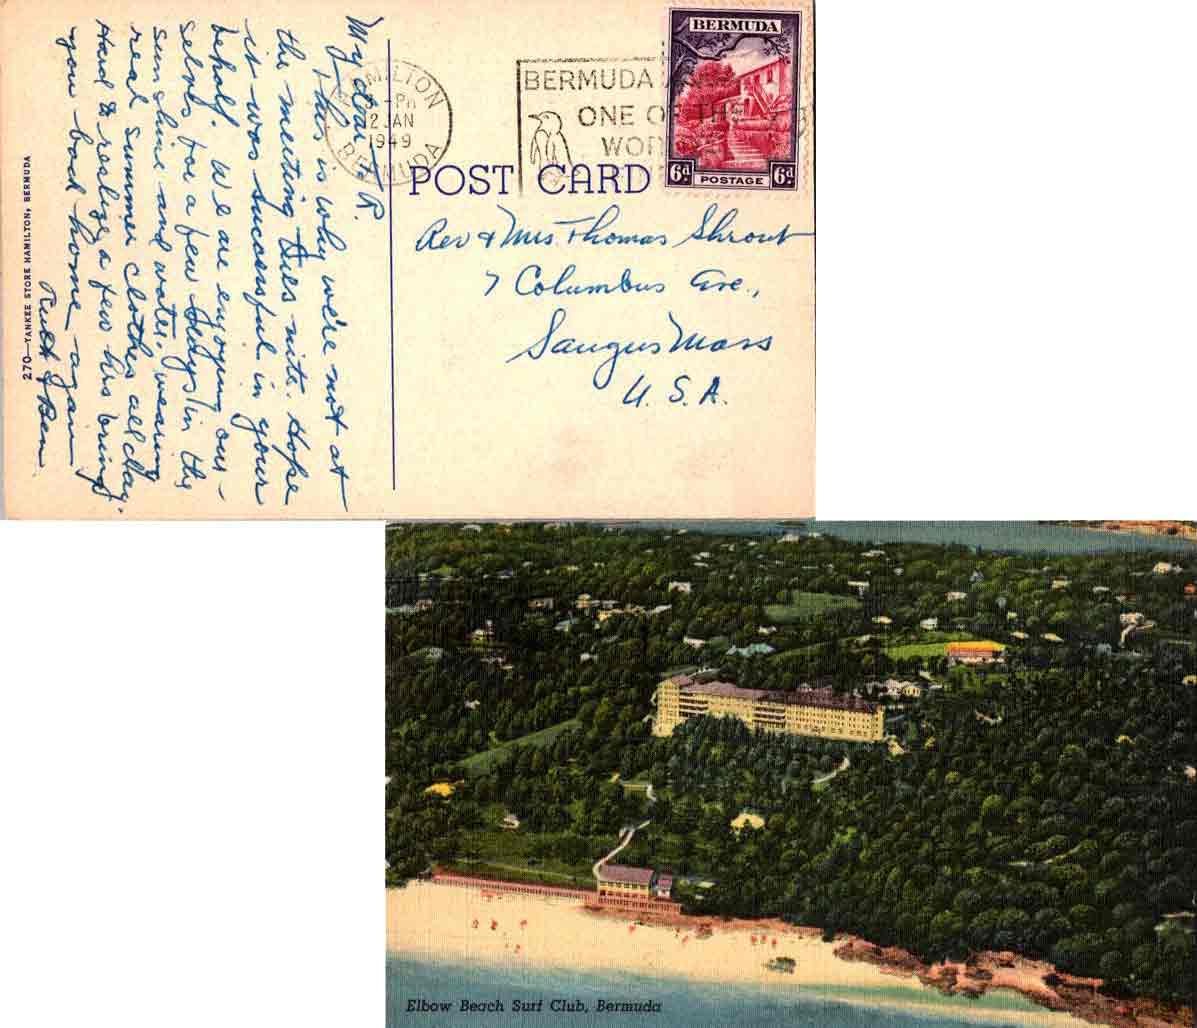 BERMUDA
6d POSTAGE 6d
HAMILTON
PM
2 JAN
1949
BERMUDA
BERMUDA
ONE OF THE
POST CARD
My dear
R.
This is why we're not at
the meeting Tues nite. Hope
it was successful in your
behalf. We are enjoying our-
selves for a few days in the
sunshine and water, wearing
real summer clothes all day.
Hard to realize a few hrs bring
you back home again
Ruth & Ben
Rev & Mrs. Thomas Shrout
7 Columbus Ave.,
Saugus Mass
U. S. A.
270—YANKEE STORE HAMILTON, BERMUDA
Elbow Beach Surf Club, Bermuda